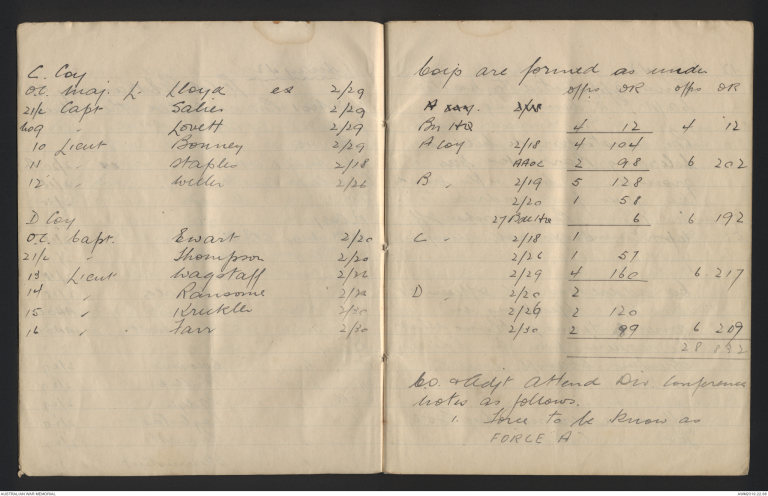 C. Coy
O.C. Maj. L. Lloyd ex 2/29
2i/c Capt Salier 2/29
Lovett 2/29
10 Lieut Bonney 2/29
11 " Staples 2/18
12 " Weller 2/26
D Coy
O.C. Capt. Ewart 2/20
2i/c " Thompson 2/20
13 Lieut Wagstaff 2/26
14 " Ransome
15 " Krickler 2/30
16 " Farr 2/30
Coys are formed as under
Offrs OR Offrs OR
Bn HQ 4 12 4 12
A Coy 2/18 4 104
AAOC 2 98 6 202
B " 2/19 5 128
2/20 1 58
27 Bde HQ 6 6 192
C " 2/18 1
2/26 1 57
2/29 4 160 6 217
D " 2/20 2
2/26 2 120
2/30 2 89 6 209
28 832
C.O. & Adjt attend Div. Conference
notes as follows.
1. Force to be know as
FORCE A
AUSTRALIAN WAR MEMORIAL